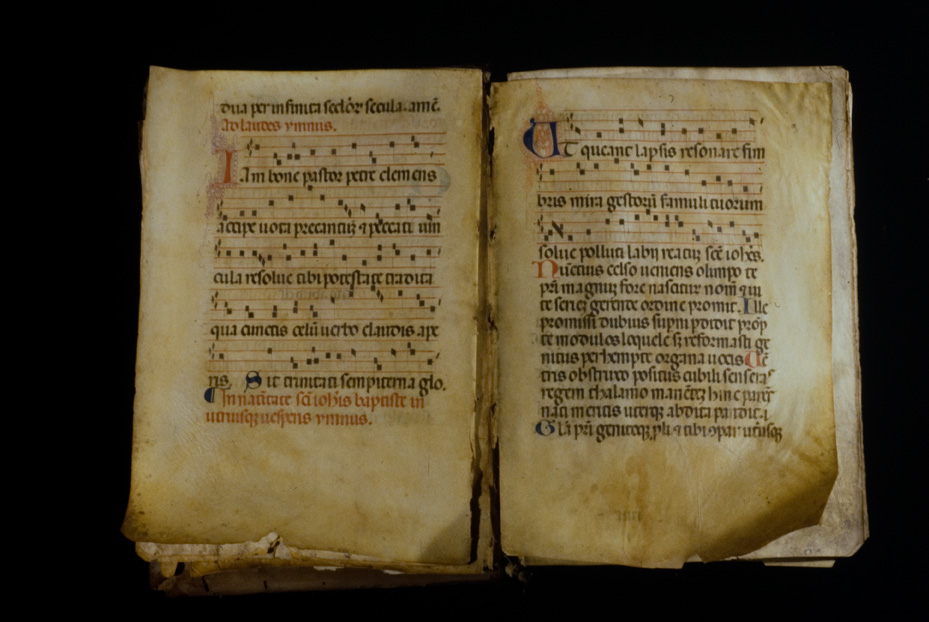 dua per infinita seclor secula. amē.
Ad laudes ymnus.
Iam bone pastor petre clemens
accipe uota precantiū & peccati uin
cula resolue tibi potestate tradita
qua cunctis celū uerbo claudis ape
ris. Sit trinitati sempiterna glo.
In natiuitate scī iohis baptiste in
utriusq uesperis ymnus.
UT queant laxsis resonare fim
bris mira gestorū famuli tuorum
solue polluti labii reatū scē iohēs.
Nuntius celso ueniens olimpo te
prī magnū fore nasciturū nomē & ui
te seriē gerende ordine promit. Ille
promissi dubius supni pdidit prōp
te modulos loquele sȝ reformasti ge
nitus perhempte organa uocis Uē
tris obstruxo positus cubili senseras
regem thalamo manētē hinc parēs
nati meritis uterq abdita pandit.
Glā prī geniteq pli & tibi ɔpar utriusq